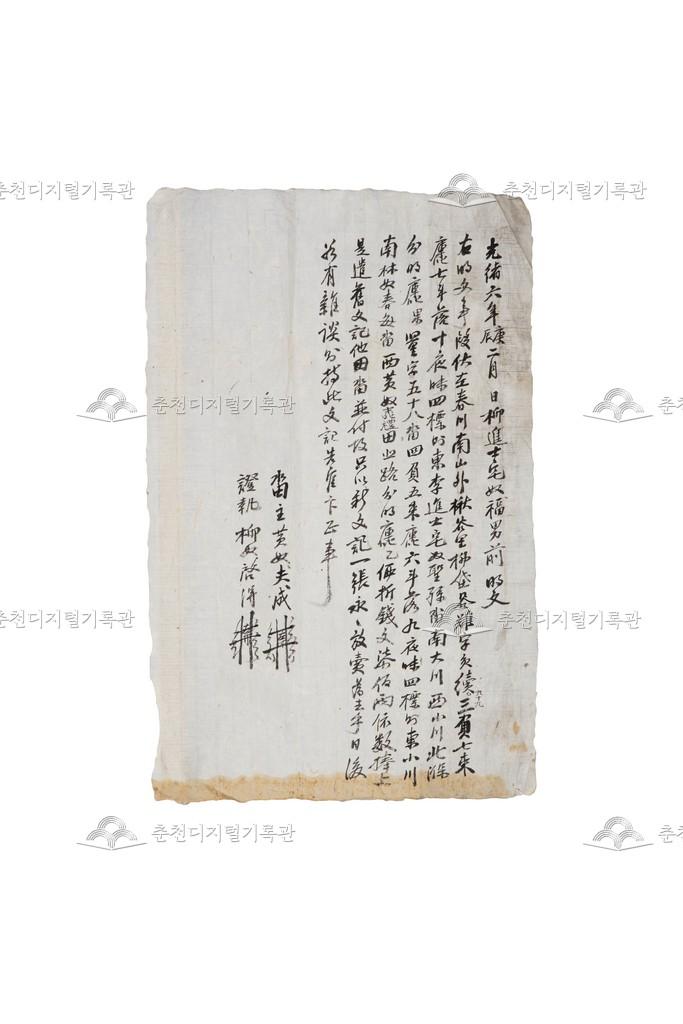 光緖六年庚辰二月 日柳進士宅奴福男前明文
右明文事段伏在春川南山外楸谷里柳岱谷難字九十九續三負七束
廤七斗落十夜味四標則東李進士宅奴聖孫畓南大川西小川北深
分明廤果量字五十八畓四負五束廤六斗落九夜味四標則東小川
南林奴春每畓西黃奴戊禮田北路分明廤乙價折錢文柒佰兩依數捧上
是遣舊文記他田畓並付故只以新文記一張永永放賣爲去乎日後
若有雜談則持此文記告官卞正事
畓主黃奴夫成
證執柳奴啓得
춘천디지털기록관
춘천디지털기록관
춘천디지털기록관
춘천디지털기록관
춘천디지털기록관
춘천디지털기록관
춘천디지털기록관
춘천디지털기록관